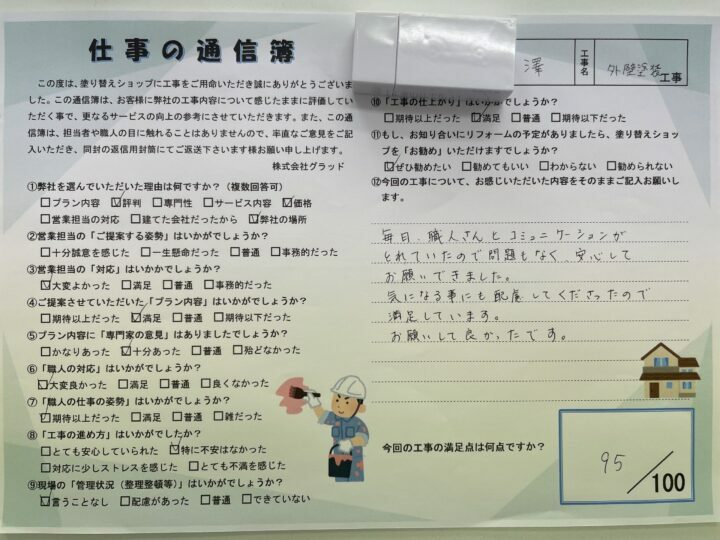 仕事の通信簿
この度は、塗り替えショップに工事をご用命いただき誠にありがとうございま
した。この通信簿は、お客様に弊社の工事内容について感じたままに評価してい
ただく事で、更なるサービスの向上の参考にさせていただきます。また、この通
信簿は、担当者や職人の目に触れることはありませんので、率直なご意見をご記
入いただき、同封の返信用封筒にてご返送下さいます様お願い申し上げます。
株式会社グラッド
①弊社を選んでいただいた理由は何ですか？（複数回答可）
□プラン内容 ☑評判 □専門性 □サービス内容 ☑価格
□営業担当の対応 □建てた会社だったから ☑弊社の場所
②営業担当の「ご提案する姿勢」はいかがでしょうか？
□十分誠意を感じた □一生懸命だった □普通 □事務的だった
③営業担当の「対応」はいかかでしょうか？
☑大変よかった □満足 □普通 □事務的だった
④ご提案させていただいた「プラン内容」はいかがでしょうか？
□期待以上だった ☑満足 □普通 □期待以下だった
⑤プラン内容に「専門家の意見」はありましたでしょうか？
□かなりあった ☑十分あった □普通 □殆どなかった
⑥「職人の対応」はいかがでしょうか？
☑大変良かった □満足 □普通 □良くなかった
⑦「職人の仕事の姿勢」はいかがでしょうか？
☑期待以上だった □満足 □普通 □雑だった
⑧「工事の進め方」はいかがでしたか？
□とても安心していられた ☑特に不安はなかった
□対応に少しストレスを感じた □とても不満を感じた
⑨現場の「管理状況（整理整頓等）」はいかがでしょうか？
☑言うことなし □配慮があった □普通 □できていない
澤 工事名 外壁塗装工事
⑩「工事の仕上がり」はいかがでしょうか？
□期待以上だった ☑満足 □普通 □期待以下だった
⑪もし、お知り合いにリフォームの予定がありましたら、塗り替えショッ
プを「お勧め」いただけますでしょうか？
☑ぜひ勧めたい □勧めてもいい □わからない □勧められない
⑫今回の工事について、お感じいただいた内容をそのままご記入お願いし
ます。
毎日、職人さんとコミュニケーションが
とれていたので問題もなく、安心して
お願いできました。
気になる事にも配慮してくださったので
満足しています。
お願いして良かったです。
今回の工事の満足点は何点ですか？
95/100